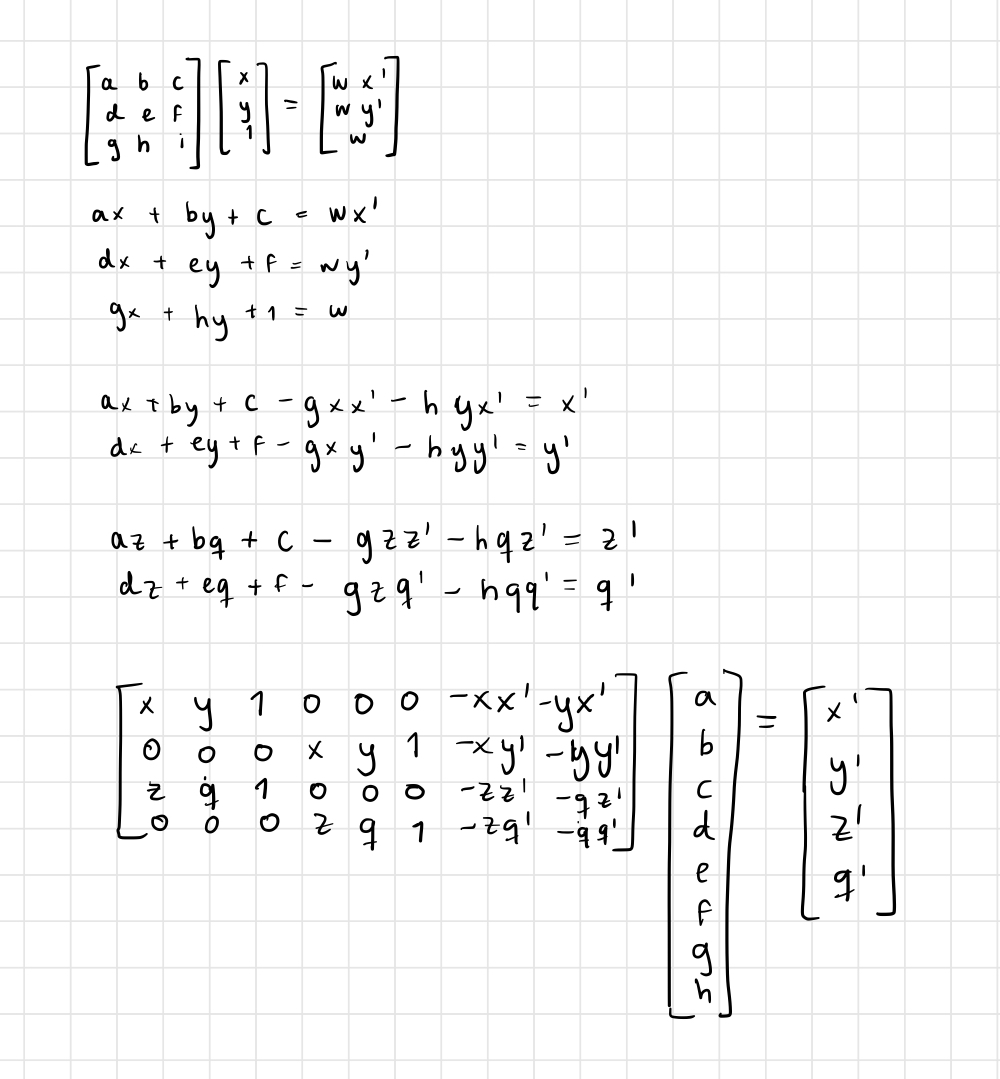 [a b c; d e f; g h i] [x; y; 1] = [w x'; w y'; w]
ax + by + c = wx'
dx + ey + f = wy'
gx + hy + 1 = w
ax + by + c - gxx' - hyx' = x'
dx + ey + f - gxy' - hyy' = y'
az + bq + c - gzz' - hqz' = z'
dz + eq + f - gzq' - hqq' = q'
[x y 1 0 0 0 -xx' -yx'; 0 0 0 x y 1 -xy' -yy'; z q 1 0 0 0 -zz' -qz'; 0 0 0 z q 1 -zq' -qq'] [a; b; c; d; e; f; g; h] = [x'; y'; z'; q']